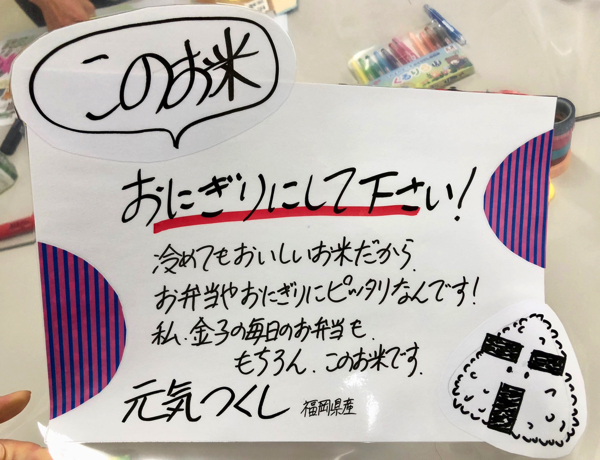 このお米
おにぎりにして下さい!
冷めてもおいしいお米だから、
お弁当やおにぎりにピッタリなんです!
私、金子の毎日のお弁当も、
もちろん、このお米です。
元気つくし 福岡県産